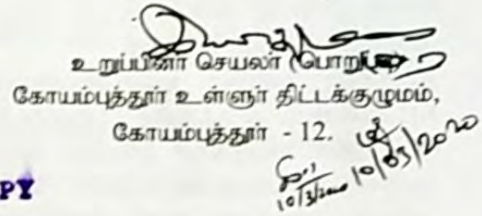 உறுப்பினர் செயலர் (பொறுப்பு)
கோயம்புத்தூர் உள்ளூர் திட்டக்குழுமம்,
கோயம்புத்தூர் - 12.
10/03/2020
10/3/2020
PY